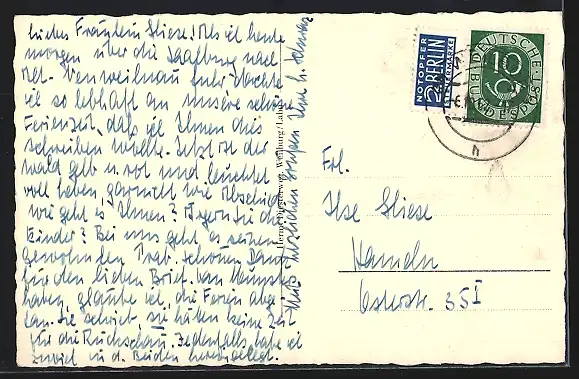 liebes Fräulein Stiese! Als ich heute
morgen über die Saalburg nach
Alt-Weilnau fuhr dachte
ich so lebhaft an unsere schöne
Ferienzeit, daß ich Ihnen dies
schreiben wollte. Jetzt ist der
Wald gelb u. rot und leuchtet
voll Leben, garnicht wie Abschied.
Wie geht es Ihnen? Ärgern Sie die
Kinder? Bei uns geht es seinen
gewohnten Trab. Schönen Dank
für den lieben Brief. Van
haben, glaube ich, die Ferien
Sie schrieb, sie hätten keine Zeit
für die Rückschau. Jedenfalls habe ich
zuviel in d. Beiden hereingelegt.
Herzlichen Ihre h.
Weilburg/Lahn
NOTOPFER
2 BERLIN
STEUERMARKE
DEUTSCHE
10
BUNDESPOST
h
Frl.
Ilse Stiese
Hameln
Osterstr. 35 I